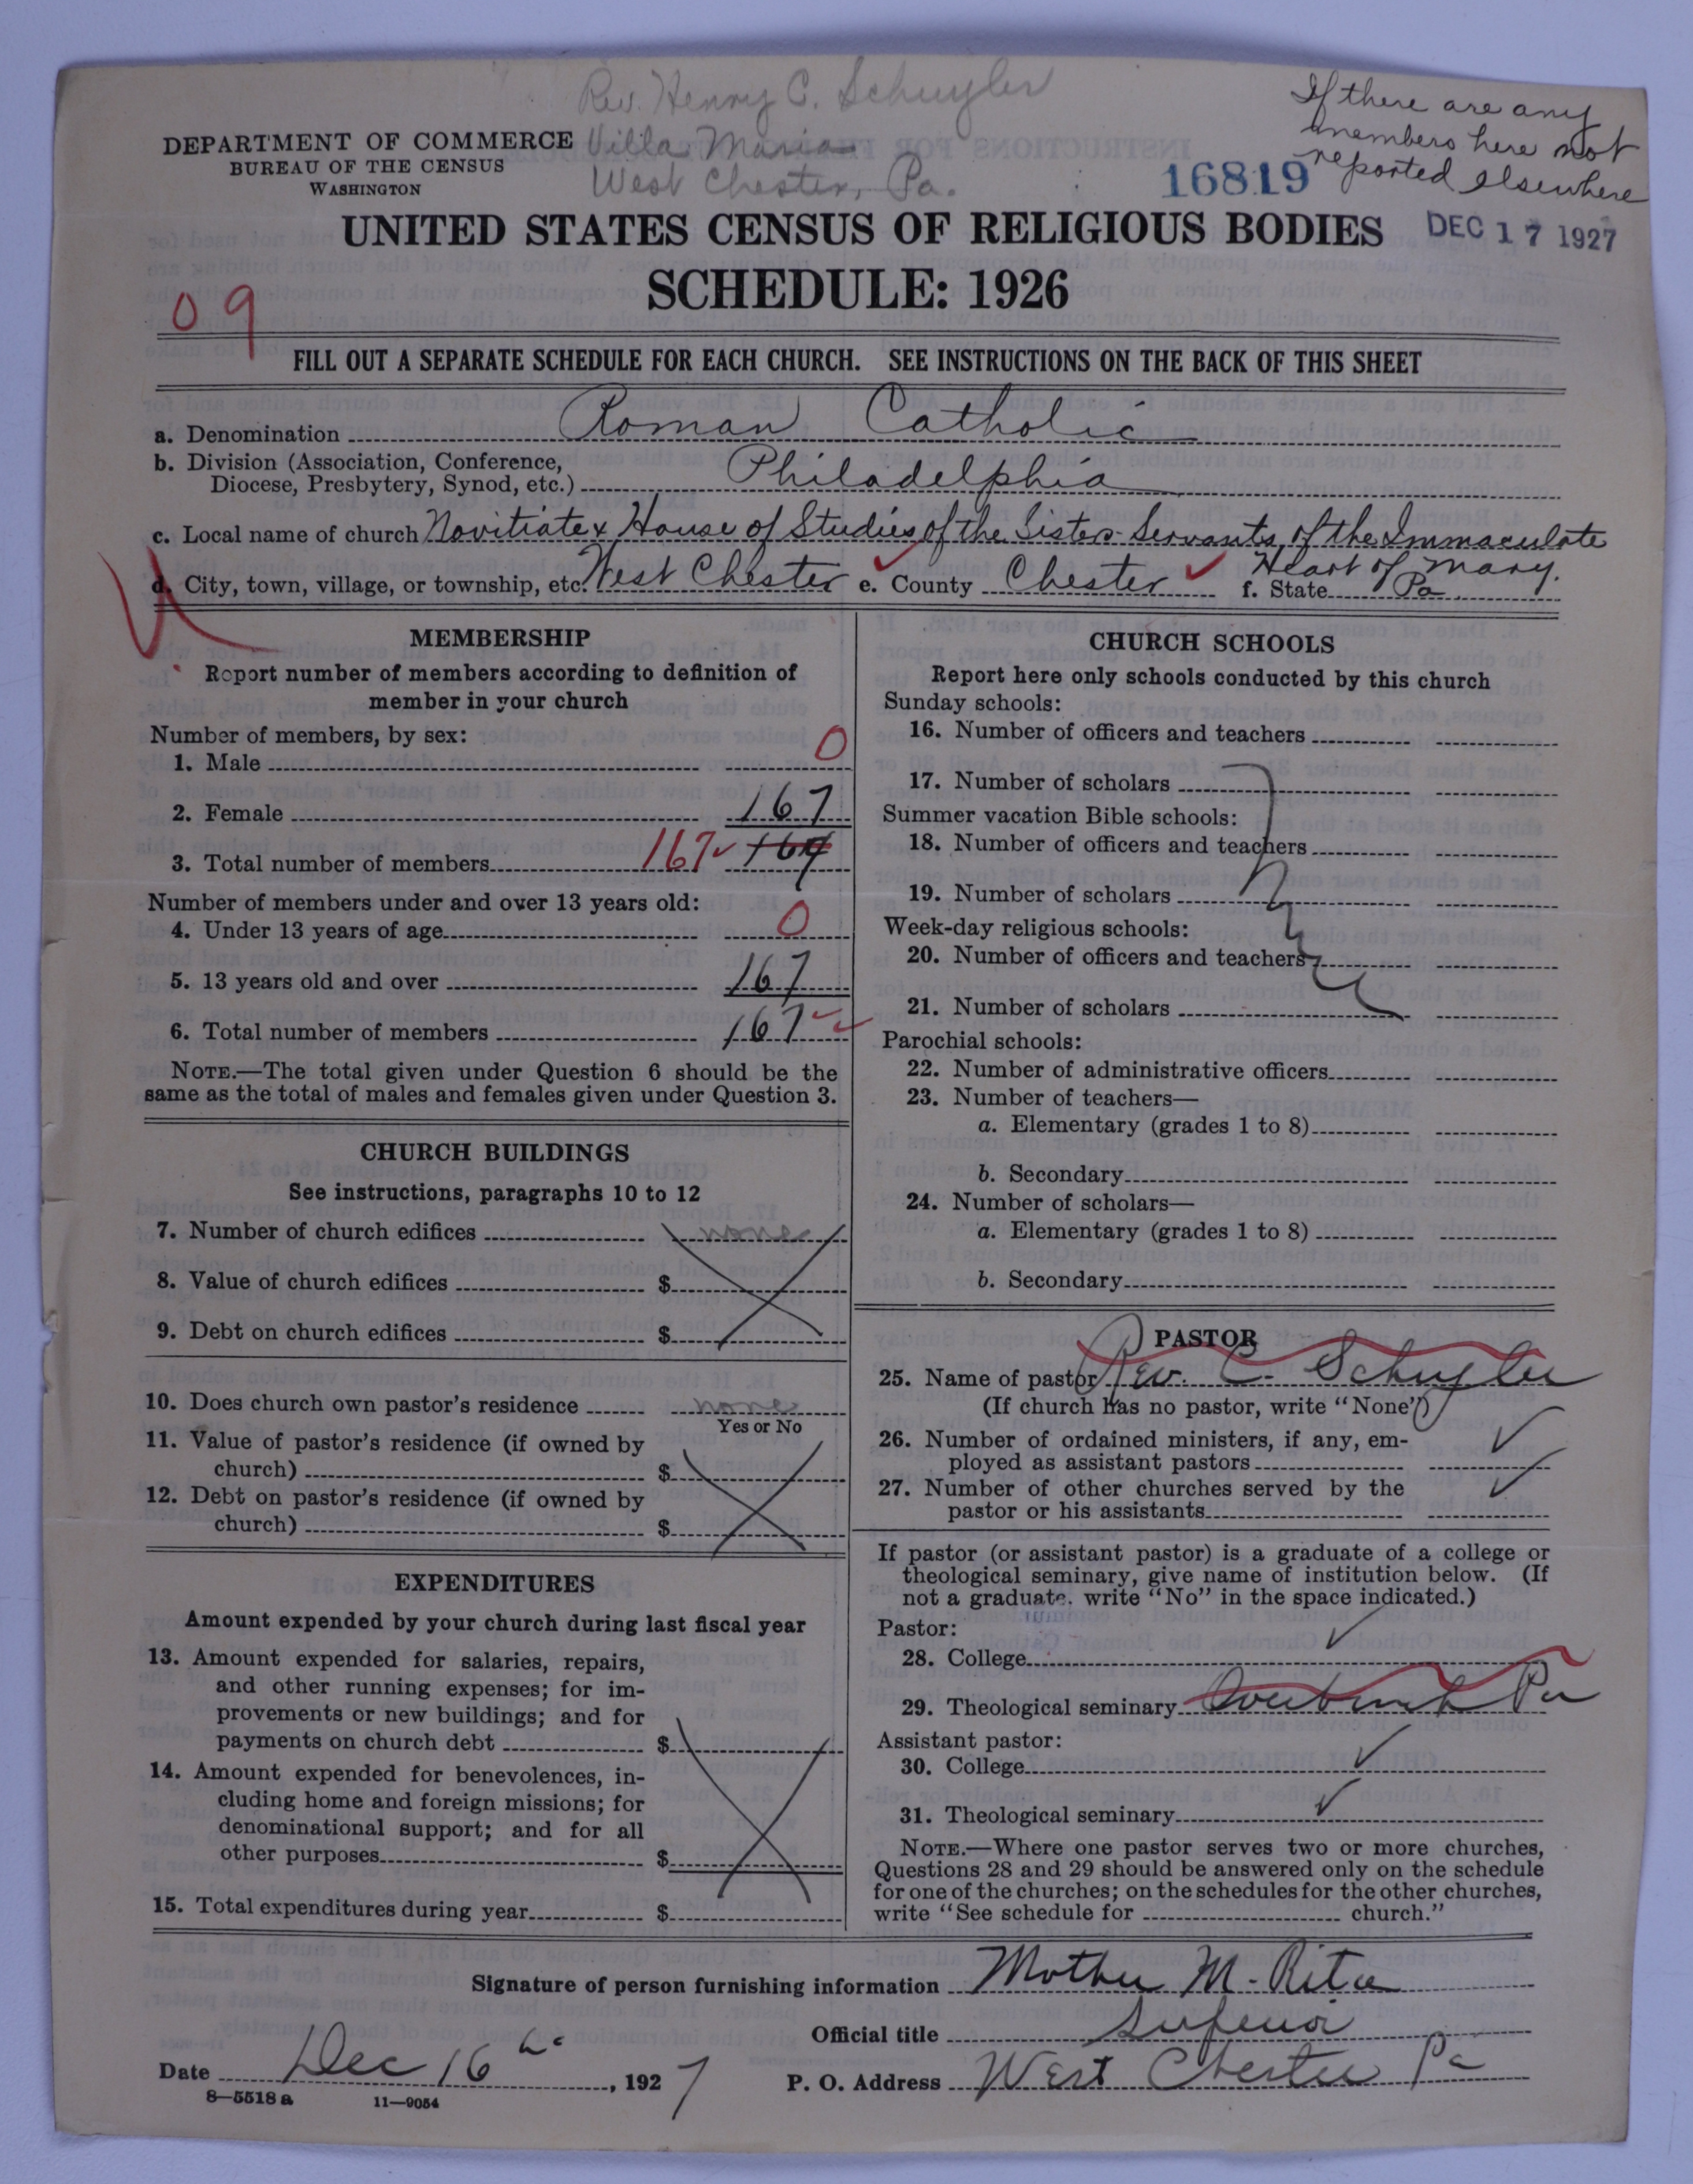 Rev. Henry C. Schuyler
Villa Maria
West Chester, Pa.
If there are any
members here not
reported elsewhere
DEPARTMENT OF COMMERCE
BUREAU OF THE CENSUS
WASHINGTON
16819
UNITED STATES CENSUS OF RELIGIOUS BODIES
DEC 17 1927
SCHEDULE: 1926
09
FILL OUT A SEPARATE SCHEDULE FOR EACH CHURCH. SEE INSTRUCTIONS ON THE BACK OF THIS SHEET
a. Denomination Roman Catholic
b. Division (Association, Conference,
Diocese, Presbytery, Synod, etc.) Philadelphia
c. Local name of church Novitiate & House of Studies of the Sisters Servants of the Immaculate
Heart of Mary.
d. City, town, village, or township, etc. West Chester e. County Chester f. State Pa.
MEMBERSHIP
Report number of members according to definition of
member in your church
Number of members, by sex:
1. Male 0
2. Female 167
3. Total number of members 167 167
Number of members under and over 13 years old:
4. Under 13 years of age 0
5. 13 years old and over 167
6. Total number of members 167
NOTE.—The total given under Question 6 should be the
same as the total of males and females given under Question 3.
CHURCH BUILDINGS
See instructions, paragraphs 10 to 12
7. Number of church edifices none
8. Value of church edifices $
9. Debt on church edifices $
10. Does church own pastor's residence none
Yes or No
11. Value of pastor's residence (if owned by
church) $
12. Debt on pastor's residence (if owned by
church) $
EXPENDITURES
Amount expended by your church during last fiscal year
13. Amount expended for salaries, repairs,
and other running expenses; for im-
provements or new buildings; and for
payments on church debt $
14. Amount expended for benevolences, in-
cluding home and foreign missions; for
denominational support; and for all
other purposes $
15. Total expenditures during year $
CHURCH SCHOOLS
Report here only schools conducted by this church
Sunday schools:
16. Number of officers and teachers
17. Number of scholars
Summer vacation Bible schools:
18. Number of officers and teachers
19. Number of scholars
Week-day religious schools:
20. Number of officers and teachers
21. Number of scholars
Parochial schools:
22. Number of administrative officers
23. Number of teachers—
a. Elementary (grades 1 to 8)
b. Secondary
24. Number of scholars—
a. Elementary (grades 1 to 8)
b. Secondary
PASTOR
25. Name of pastor Rev. C. Schuyler
(If church has no pastor, write "None")
26. Number of ordained ministers, if any, em-
ployed as assistant pastors
27. Number of other churches served by the
pastor or his assistants
If pastor (or assistant pastor) is a graduate of a college or
theological seminary, give name of institution below. (If
not a graduate, write "No" in the space indicated.)
Pastor:
28. College
29. Theological seminary Overbrook Pa
Assistant pastor:
30. College
31. Theological seminary
NOTE.—Where one pastor serves two or more churches,
Questions 28 and 29 should be answered only on the schedule
for one of the churches; on the schedules for the other churches,
write "See schedule for church."
Signature of person furnishing information Mother M. Rita
Official title Superior
Date Dec 16, 1927 P. O. Address West Chester Pa
8—5518 a 11—9054